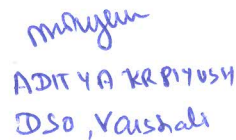 ADITYA KR PIYUSH
DSO, Vaishali